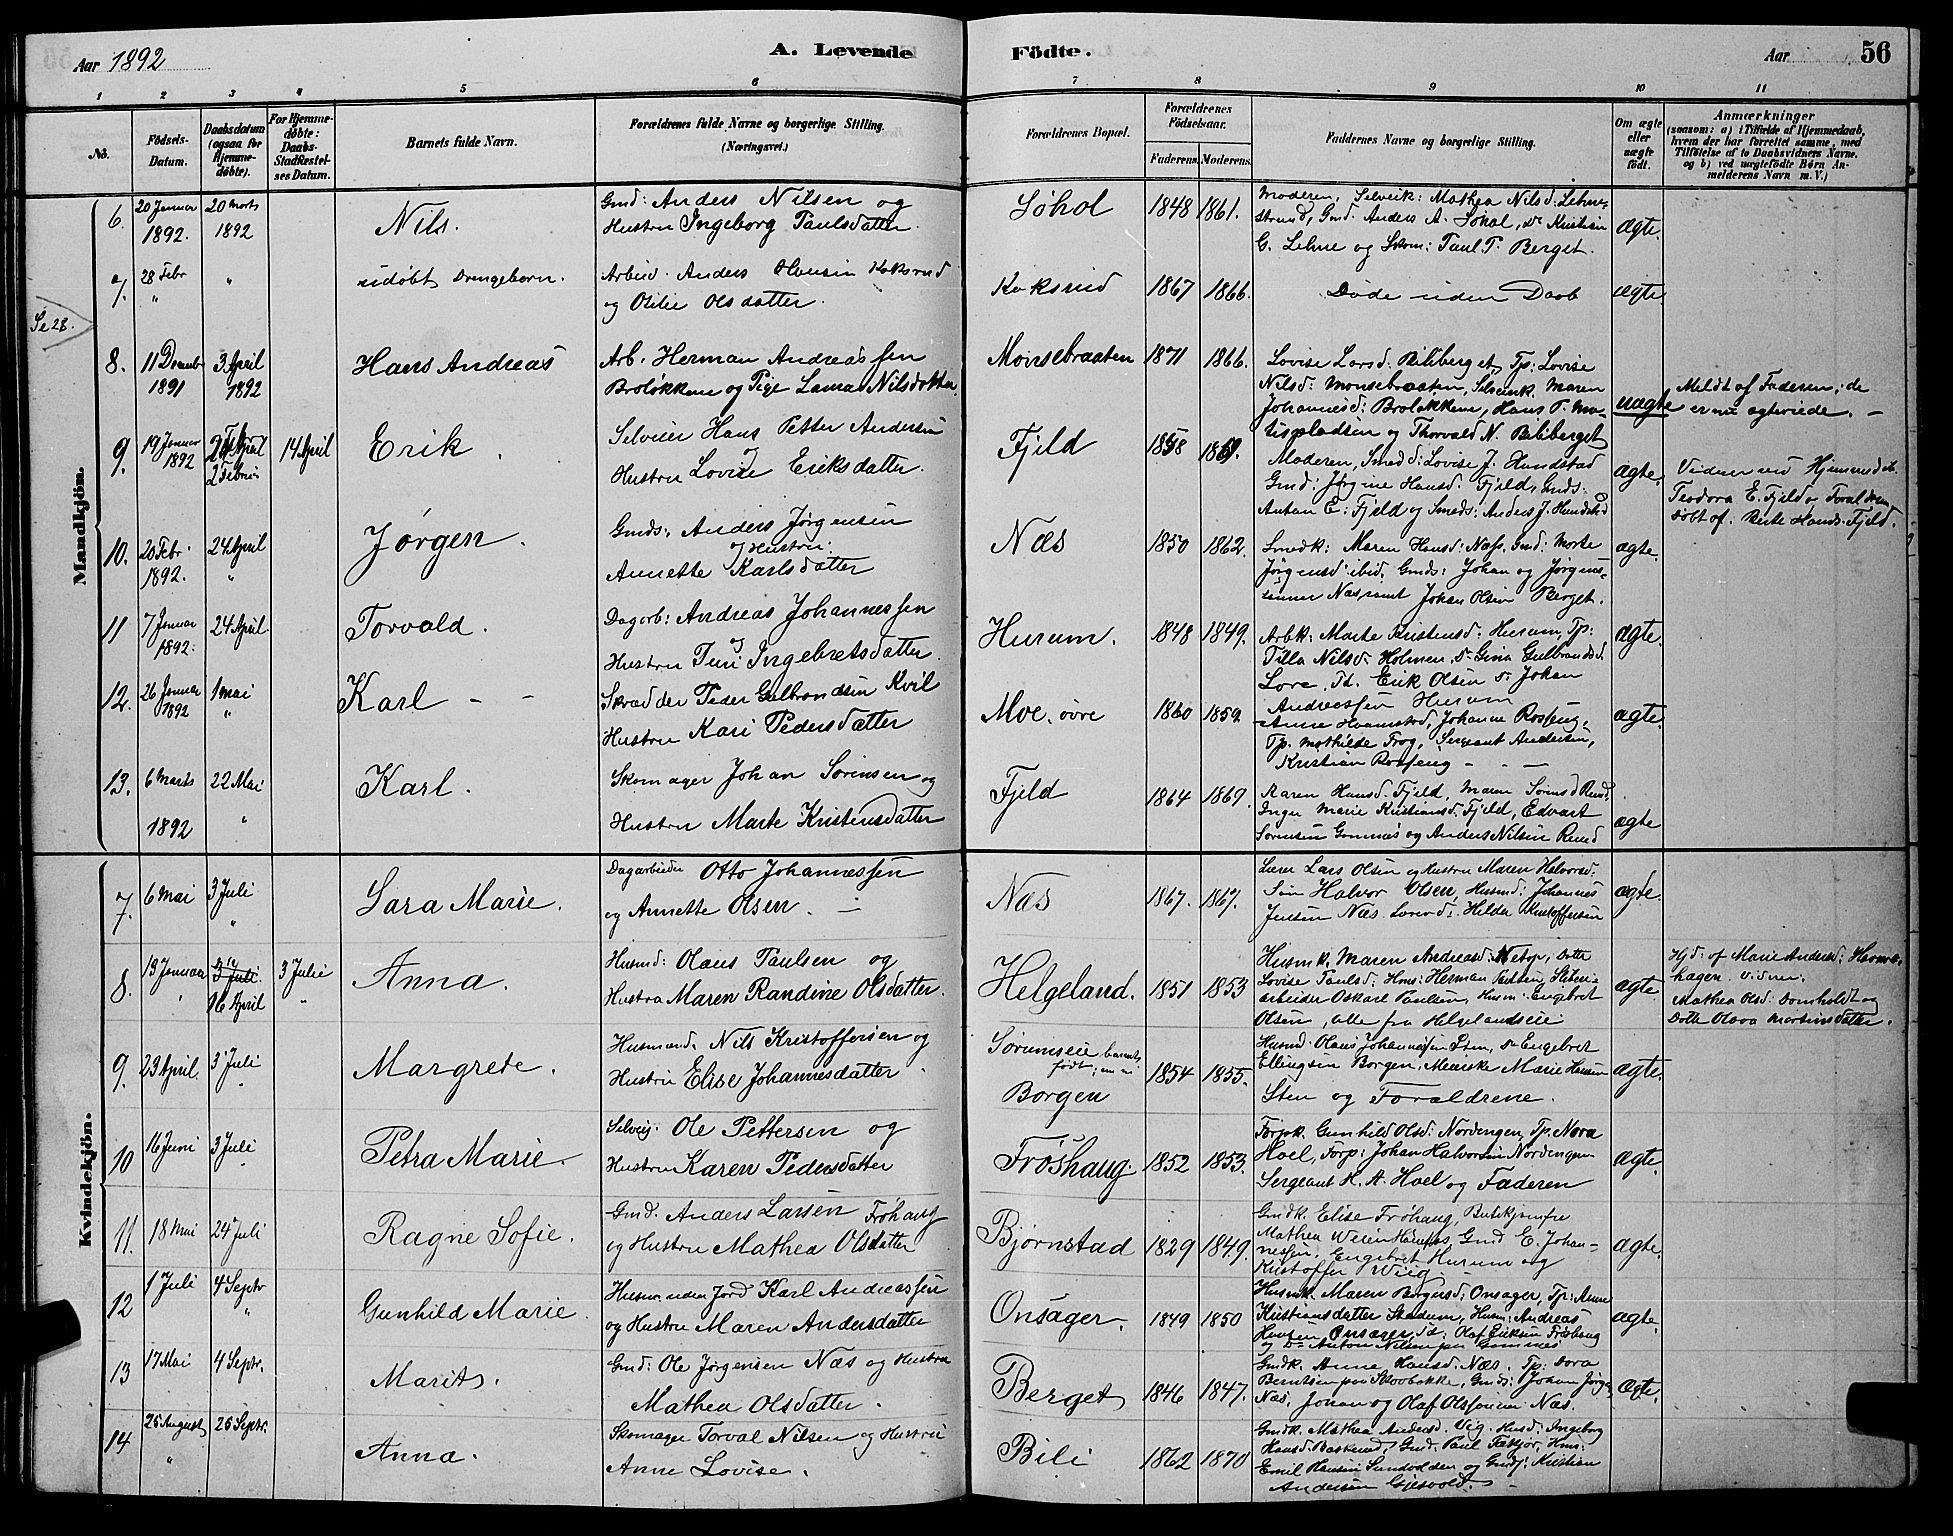 Aar 1892
A. Levende
Födte.
Aar
56
1 2 3 4 5 6 7 8 9 10 11
No.
Födsels-Datum.
Daabsdatum (ogsaa for Hjemme-döbte).
For Hjemme-döbte: Daabs-Stadfæstel-ses Datum.
Barnets fulde Navn.
Forældrenes fulde Navne og borgerlige Stilling. (Næringsvei.)
Forældrenes Bopæl.
Forældrenes Födselsaar.
Faderens. Moderens.
Faddernes Navne og borgerlige Stilling.
Om ægte eller uægte födt.
Anmærkninger
(saasom: a) i Tilfælde af Hjemmedaab, hvem der har forrettet samme, med Tilföielse af to Daabsvidners Navne, og b) ved uægtefödte Börn An-melderens Navn m. V.)
Mandkjön.
6. 20 Januar 1892. 20 Marts 1892 Nils. Gmd: Anders Nilsen og Hustru Ingeborg Paulsdatter. Søhol 1848 1861. Moderen, Selveik: Mathea Nilsd: Lehne-strand, Gmd: Anders A. Søhol, do Kristian G. Lehne og Skom: Paul P. Berget. ægte.
7. 28 Febr " " udøbt Drengebarn. Arbeid. Anders Hansen Koksrud og Otilie Olsdatter. Koksrud 1867 1866. Døde uden Daab ægte
Se 28.
8. 11 Decembr 1891 3 April 1892 Hans Andreas Arb. Herman Andreassen Broløkken og Pige Laura Nilsdatter. Monsebraaten 1871 1866. Lovise Larsd: Biliberget, Tp: Lovise Nilsd: Monsebraaten, Selveiek. Maren Johannesd: Broløkken, Hans P. Mo-tispladsen og Thorvald N. Biliberget uægte Meldt af Faderen; de er nu ægteviede. —
9. 19 Januar 1892 2 Februar 14 April Erik. Selveier Hans Petter Andersen og Hustru Lovise Eriksdatter. Fjeld 1858 Moderen, Smedd: Lovise J. Hundstad Gmd: Jørgine Hansd. Fjeld, Gmds: Anton E. Fjeld og Smeds: Anders J. Hundstad ægte. Vidner ved Hjemmed. Teodora E. Fjeld o Forældrene døbt af. Berte Hansd. Fjeld.
10. 20 Febr 1892. 24 April " Jørgen. Gmds: Anders Jørgensen og Hustru: Annette Karlsdatter Næs 1850 1862. Smedk: Maren Hansd: Næss, Gmd: Marte Jørgensd ibid, Gmds: Johan og Jørgens-sønner Næs samt Johan Olsen Berget. ægte.
11 7 Januar 1892. 24 April. Torvald. Dagarb: Andreas Johannessen og Hustru Turi Ingebretsdatter. Hurum. 1848 1849. Arbk: Marte Kristensd: Hurum, Tp: Tilla Nilsd: Holmen, do Gina Gulbrandsd. Lore, Td. Erik Olsen do Johan Andreassen Hurum ægte.
12. 26 Januar 1892 1 Mai " Karl - - Skrædder Peder Gulbrandsen Kvil Hustru Kari Pedersdatter Moe, øvre 1860 1859. Anne Hvamstad, Johanne Rosfeng, Tp. Mathilde Frog, Sergeant Andersen, Kristian Rosfeng - - - ægte.
13. 6 Marts 1892 22 Mai " Karl. Skomager Johan Sørensen og Hustru Marte Kristensdatter Fjeld 1864 1869. Karen Hansd. Fjeld, Maren Sørensd Rund, Inger Marie Kristiansd. Fjeld, Edvart Sørensen Gomnæs og Anders Nilsen Rund ægte
Kvindekjön.
7. 6 Mai 3 Juli " Sara Marie. Dagarbeider Otto Johannessen og Annette Olsen. — Næs 1867. 1867. Lærer Lars Olsen og Hustru Maren Halvorsd. Søn Halvor Olsen, Husmd: Johannes Jensen Næs, Lærerd: Hilda Kristoffersen ægte.
8. 19 Januar " 3 Juli 16 April 3 Julie " Anna. Husmd: Olaus Paulsen og Hustru Maren Randine Olsdatter. Helgeland. 1851 1853 Husmk. Maren Andreasd: Netop, Datte Lovise Paulsd: Hms: Herman Paulsen, Sliberi-arbeider Oskarl Paulsen, Husm: Engebret Olsen, alle fra Helgelandseie ægte. Hjd: af Marie Andersd: Havne-hagen. Vidner: Mathea Olsd: Domholdt og Datte Olava Martinsdatter.
9. 29 April. 3 Juli " Margrete. Husmand: Nils Kristoffersen og Hustru Elise Johannesdatter. Sørumseie barnet født Borgen 1854 1855. Husmd: Olaus Johannessen Sten, do Engebret Ellingsen Borgen, Meierske Marie Hansen Sten og Forældrene. ægte.
10 16 Juni 3 Juli " Petra Marie. Selveig. Ole Pettersen og Hustru Karen Pedersdatter Frøshaug. 1852 1853. Forpk. Gunhild Olsd: Nordengen, Tp. Nora Hoel, Forp: Johan Halvorsen Nordengen Sergeant H. A. Hoel og Faderen ægte.
11. 18 Mai 24 Juli Ragne Sofie. Gmd. Anders Larsen Frøhaug og Hustru Mathea Olsdatter Bjørnstad 1829 1849. Gmdk: Elise Frøhaug, Butikjomfru Mathea Weien Hønefos, Gmd E. Johan-nessen, Engebret Hurum og Kristoffer Wiig. ægte.
12 1 Juli 4 Septr " Gunhild Marie. Husm. uden Jord Karl Andreassen og Hustru Maren Andersdatter Onsager. 1849 1850 Husmk. Maren Borgersd: Onsager, Tp: Anne Kristiansdatter Stadum, Husm: Andreas Hansen Onsager, Td: Olaf Eriksen Frøhaug og Do Anton Nilsen paa Gomnæs ægte.
13 17 Mai 4 Septr. Marit. Gmd: Ole Jørgensen Næs og Hustru Mathea Olsdatter. Berget 1846 1847. Gmdk. Anne Hansd. Næs. Tp: Dora Berntsen paa Skovbakke, Gmds: Johan Jørgs. Næs, Johan og Olaf Olssønner Næs. ægte.
14 25 August " 25 Septr. Anna. Skomager Torval Nilsen og Hustru Anne Lovise. Bili 1862 1870 Gmdk: Mathea Andersd. Vig. Husd: Ingeborg Hansd. Basterud, Gmd: Paul Fækjør, Hms: Emil Hansen Sundvolden og Gmds: Kristian Andersen Gjesvold. -